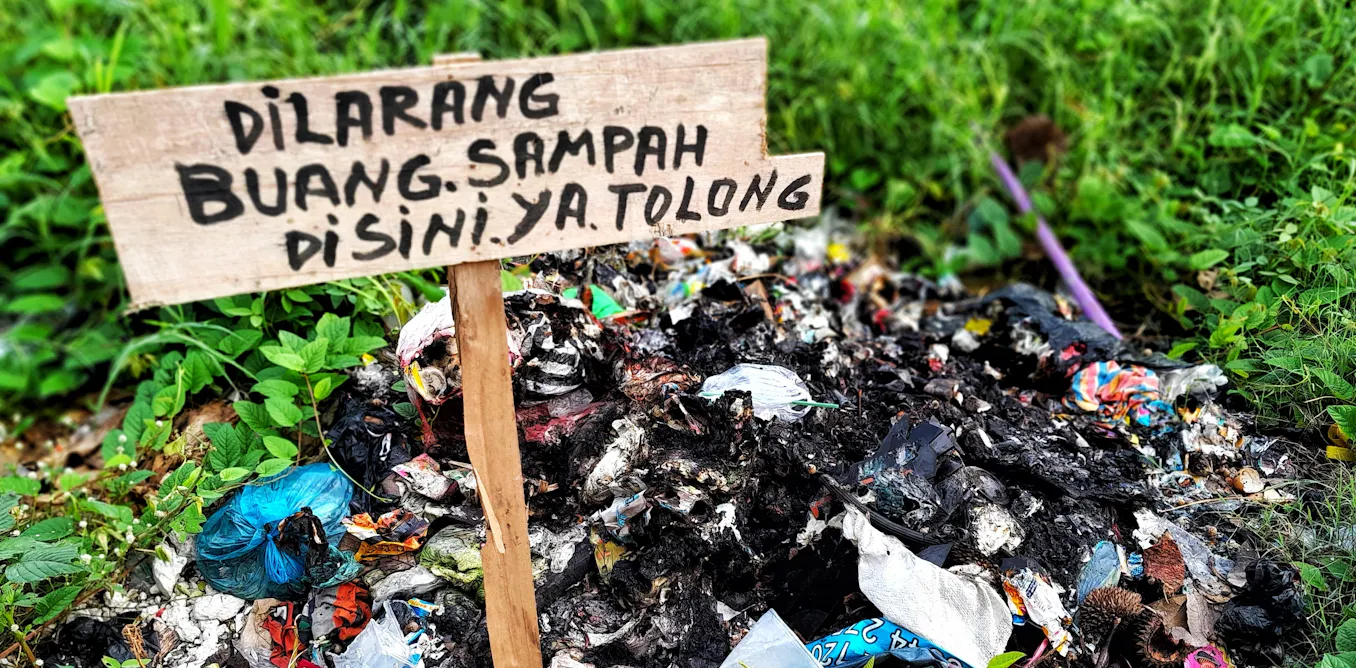 DiLARANG
BUANG. SAMPAH
DiSiNi. YA. TOLONG